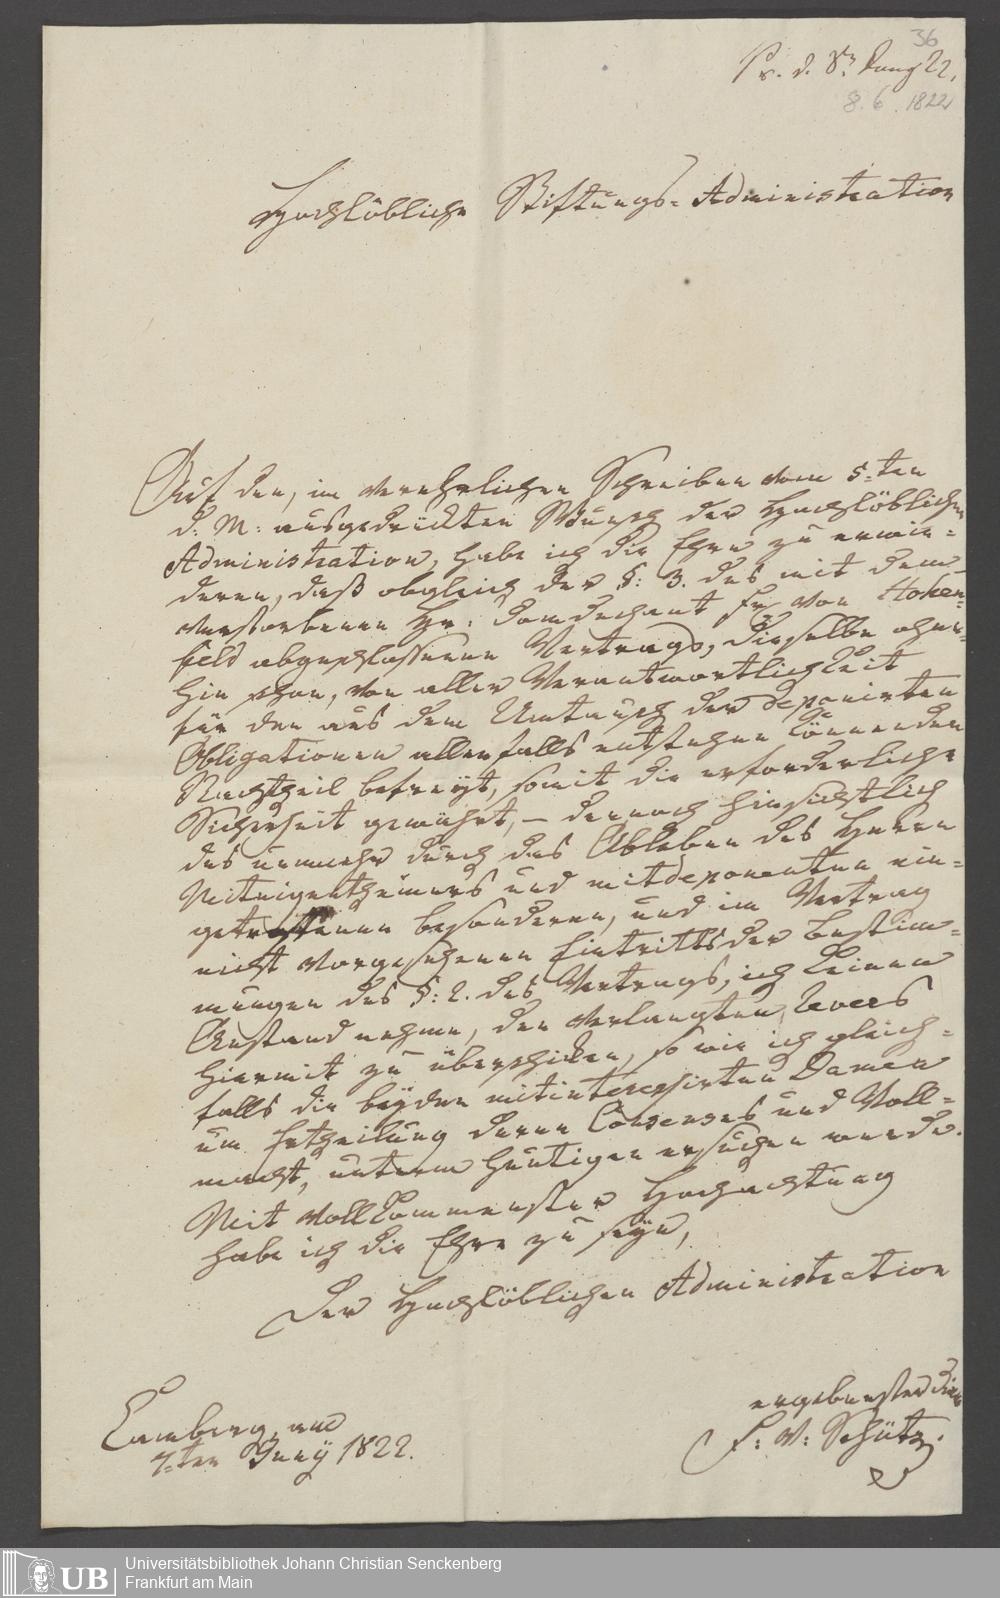 36
Pr. d. 8n Juny 22.
8.6.1822
Hochlöbliche Stiftungs-Administration
Auf den, im verehrlichen Schreiben vom 5=ten
d: M: ausgedrückten Wunsch der Hochlöblichen
Administration, habe ich die Ehre zu erwie=
deren, daß obgleich der §: 3. des mit dem
verstorbenen Hr: Domdechant Fhr von Hohen=
feld abgeschlossenen Vertrags, dieselbe ohne=
hin schon, von aller Verantwortlichkeit
für den aus dem Umtausch der deponirten
Obligationen allenfalls entstehen könnenden
Nachtheil befreyt, somit die erforderliche
Sicherheit gewährt, – dennoch hinsichtlich
des nunmehr durch das Ableben des Herrn
Miteigenthümers und mitdeponenten ein=
getroffenen besonderen, und im Vertrag
nicht vorgesehenen Eintritts der Bestim=
mungen des §: 2. des Vertrags, ich keinen
Anstand nehme, den verlangten Revers
hiermit zu überschicken, so wie ich gleich=
falls die beyden mitinteressirten Damen
um Ertheilung deren Consenses und Voll=
macht, unterm heutigen ersuchen werde.
Mit vollkommenster Hochachtung
habe ich die Ehre zu seyn,
Der Hochlöblichen Administration
Camberg, am
7=ten Juny 1822.
ergebenster Diener
F: v: Schütz.
UB
Universitätsbibliothek Johann Christian Senckenberg
Frankfurt am Main